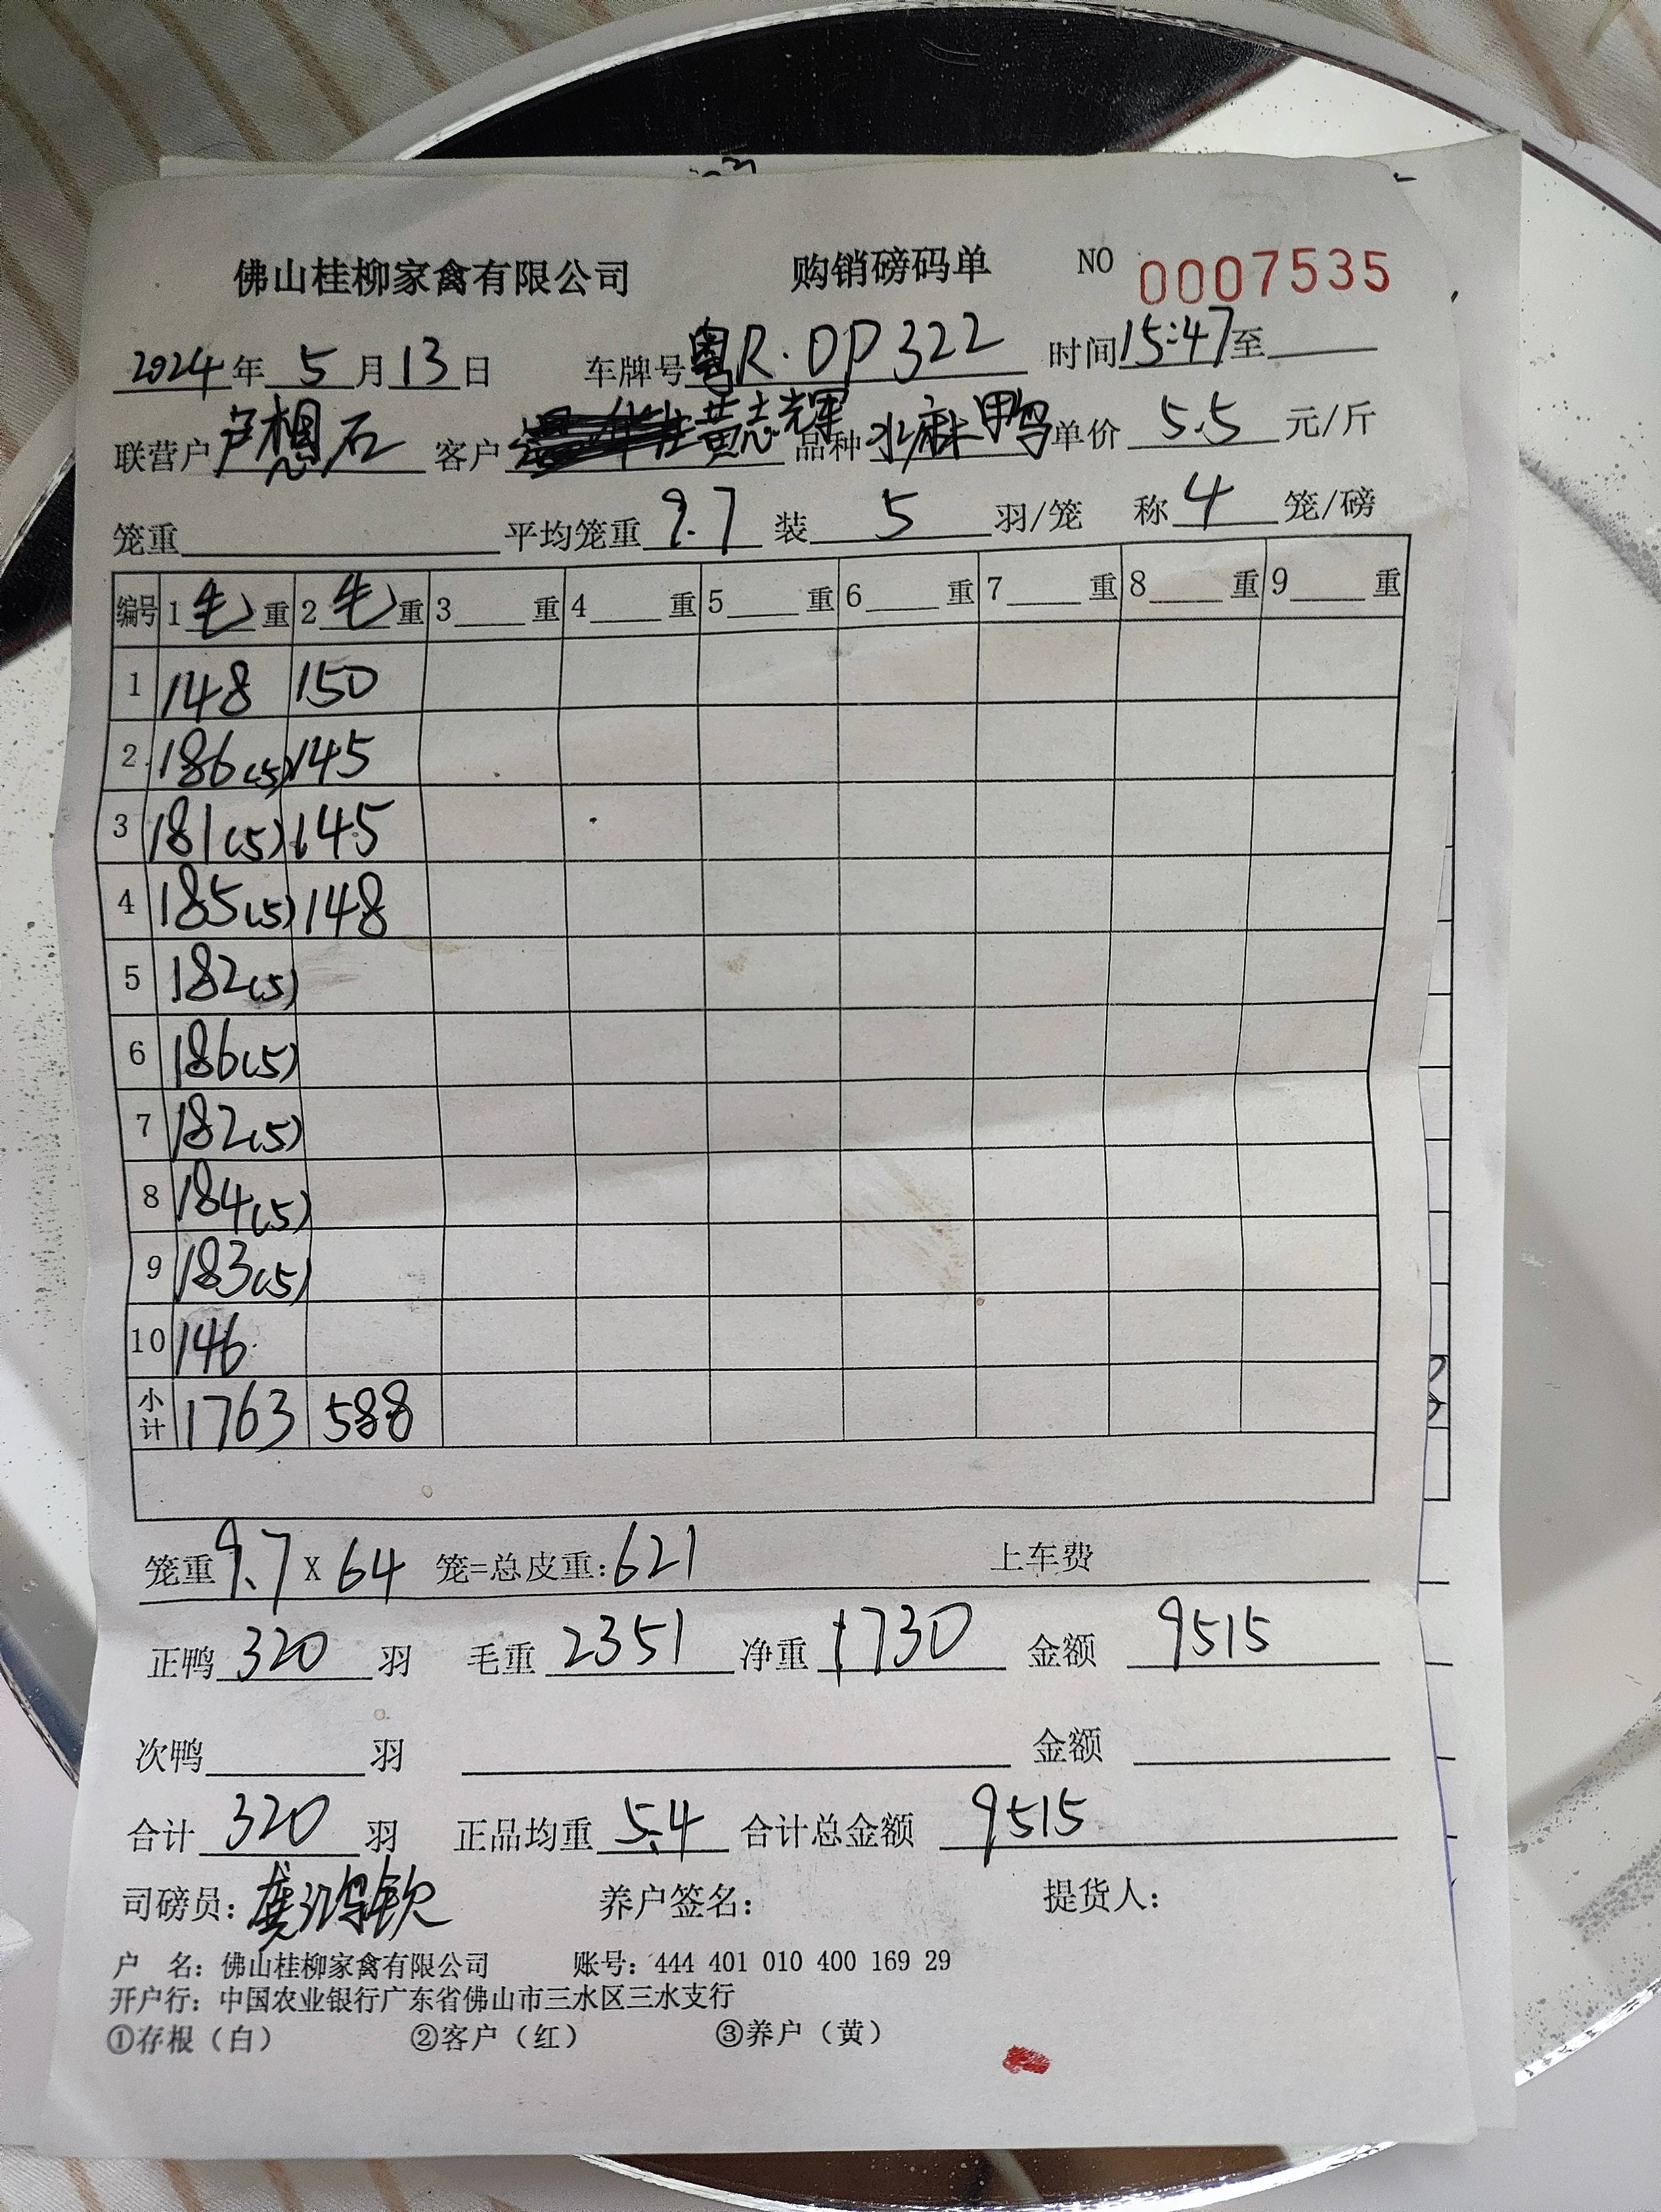 佛山桂柳家禽有限公司 购销磅码单 NO 0007535
2024年 5 月 13 日 车牌号 粤R·0P322 时间 15:47 至
联营户 卢想石 客户 黄志辉 品种 水麻鸭 单价 5.5 元/斤
笼重 平均笼重 9.7 装 5 羽/笼 称 4 笼/磅
编号 1 毛 重 2 毛 重 3 重 4 重 5 重 6 重 7 重 8 重 9 重
1 148 150
2 186(5) 145
3 181(5) 145
4 185(5) 148
5 182(5)
6 186(5)
7 182(5)
8 184(5)
9 183(5)
10 146
小计 1763 588
笼重 9.7 X 64 笼=总皮重:621 上车费
正鸭 320 羽 毛重 2351 净重 1730 金额 9515
次鸭 羽 金额
合计 320 羽 正品均重 5.4 合计总金额 9515
司磅员: 养户签名: 提货人:
户 名: 佛山桂柳家禽有限公司 账号: 444 401 010 400 169 29
开户行: 中国农业银行广东省佛山市三水区三水支行
①存根（白） ②客户（红） ③养户（黄）